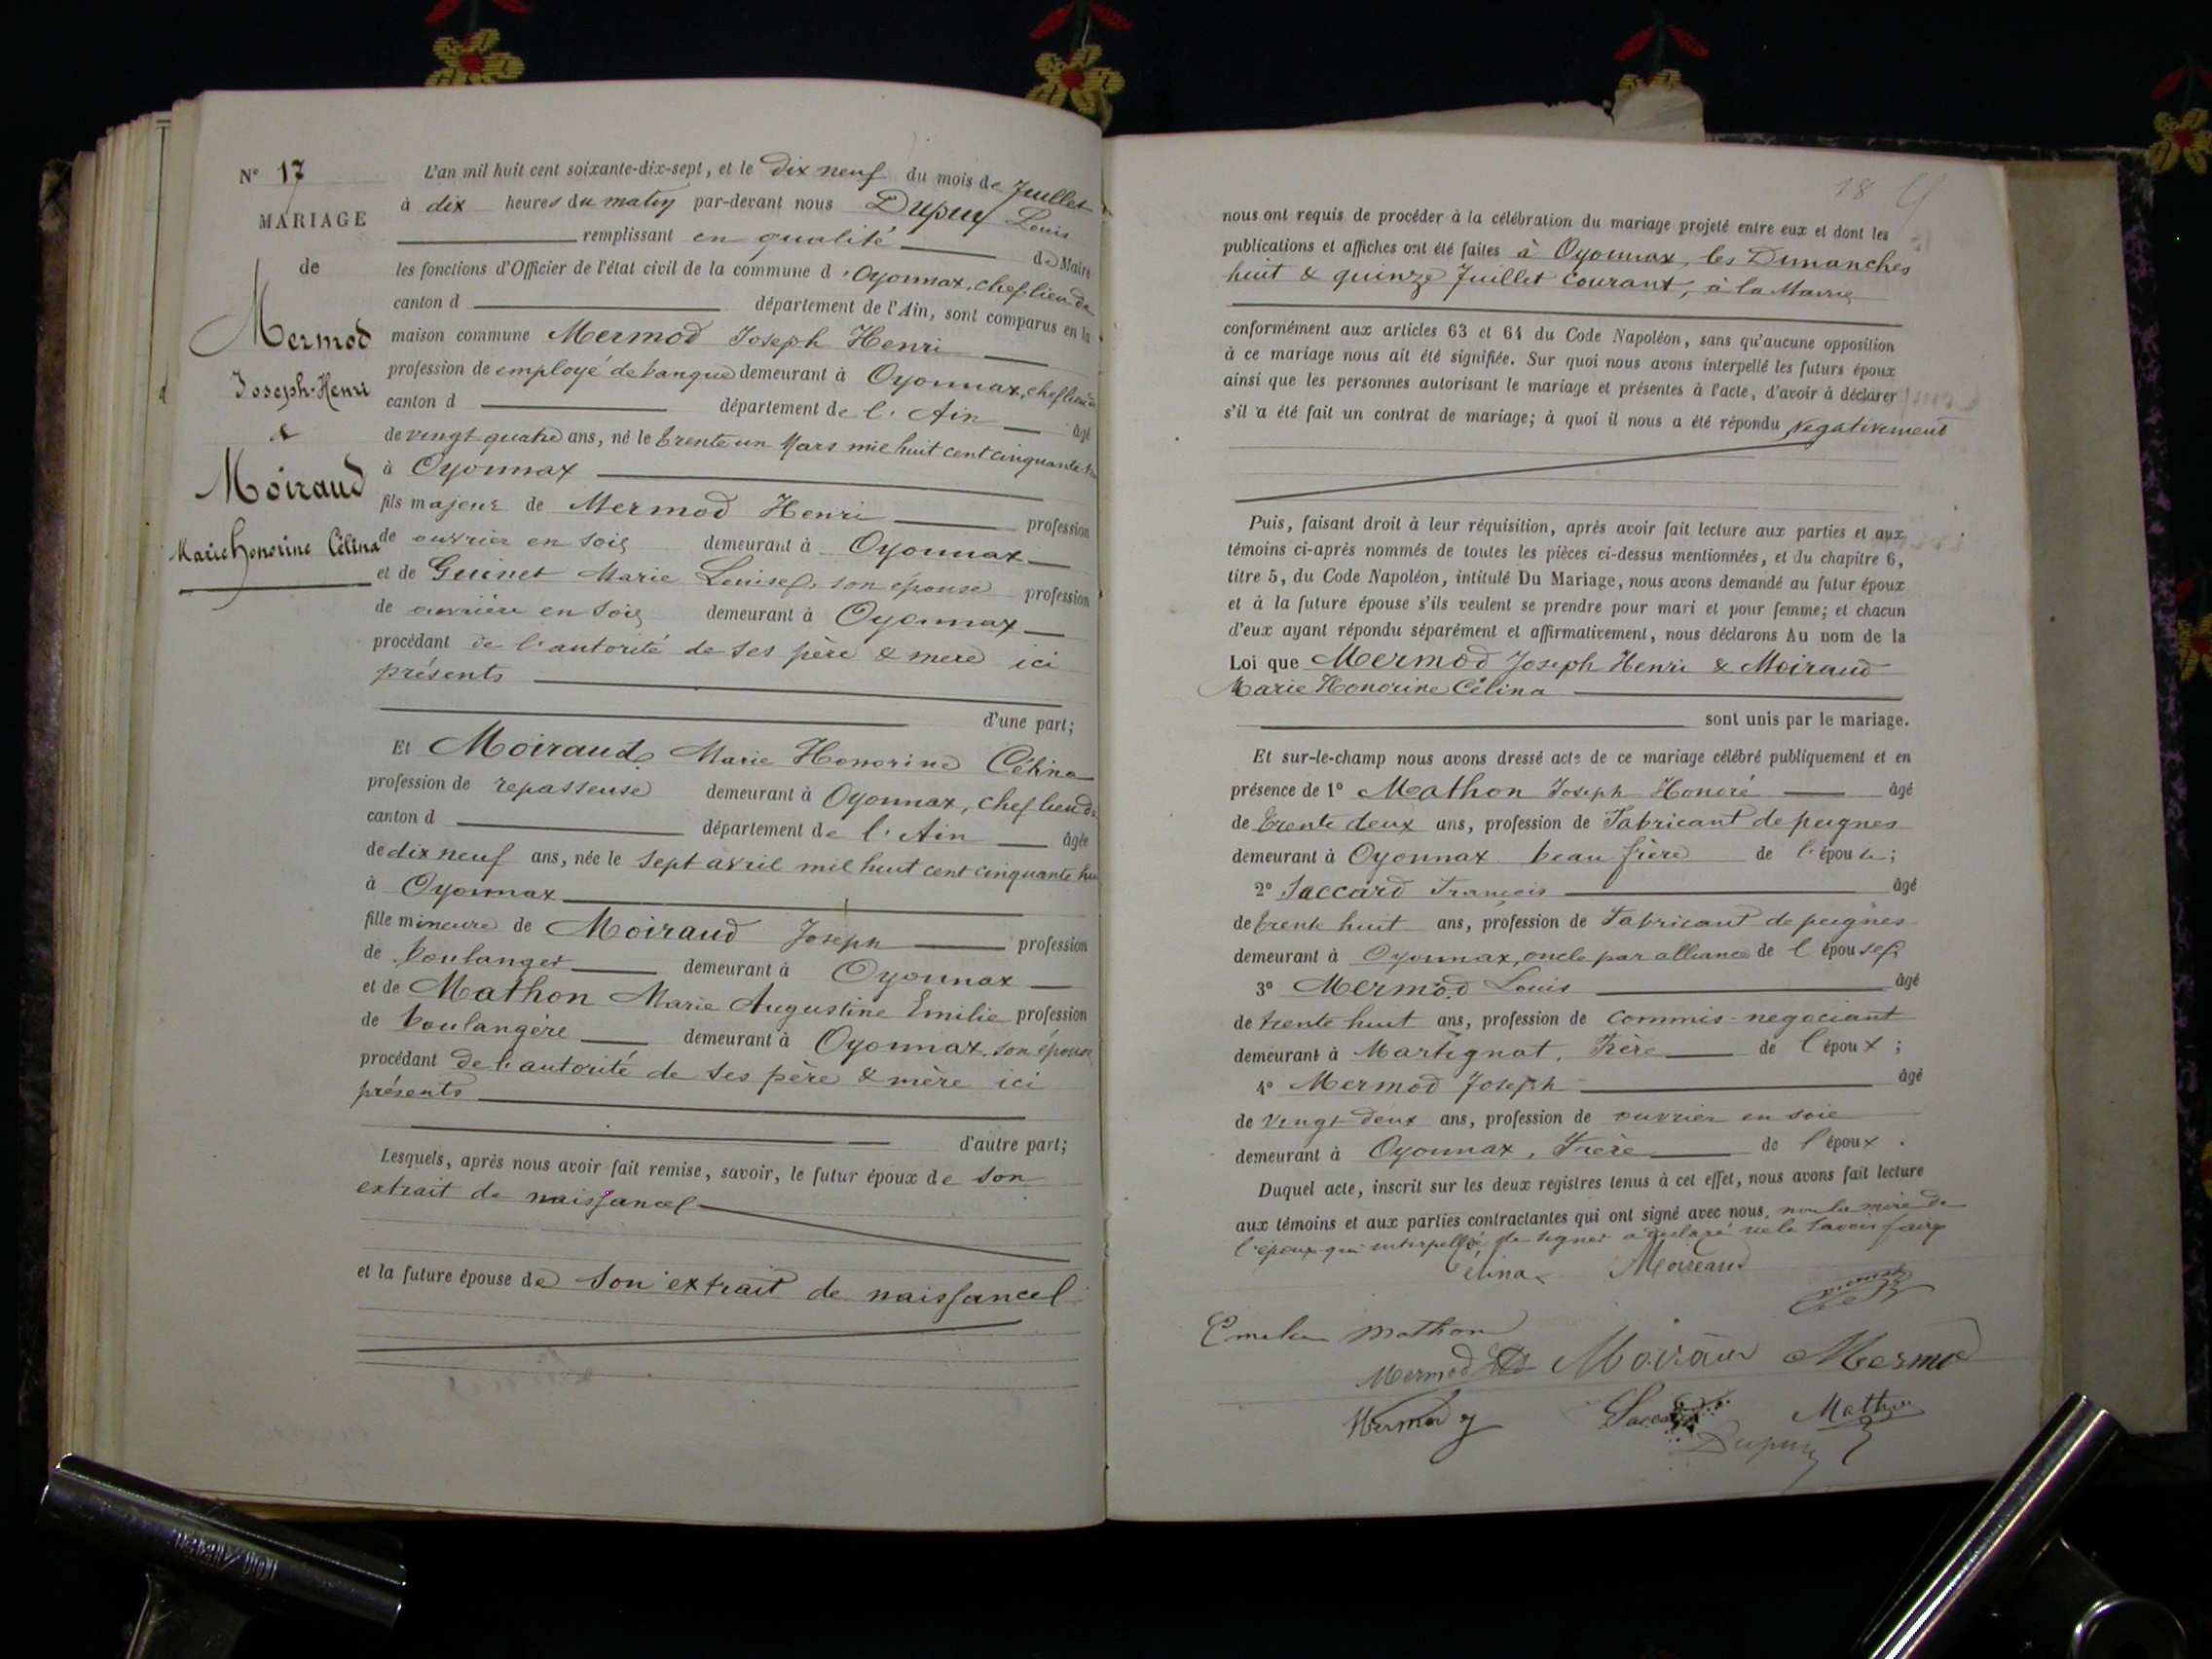 N° 17
MARIAGE
de
Mermod
Joseph-Henri
&
Moiraud
Marie Honorine Célina
L'an mil huit cent soixante-dix-sept, et le dix neuf du mois de Juillet
à dix heures du matin par-devant nous Dupuy Louis
remplissant en qualité de Maire
les fonctions d'Officier de l'état civil de la commune d'Oyonnax, chef-lieu de
canton d département de l'Ain, sont comparus en la
maison commune Mermod Joseph Henri
profession de employé de banque demeurant à Oyonnax, chef lieu de
canton d département de l'Ain âgé
de vingt quatre ans, né le trente un Mars mil huit cent cinquante
à Oyonnax
fils majeur de Mermod Henri profession
de ouvrier en soie demeurant à Oyonnax
et de Guinet Marie Louise, son épouse profession
de ouvrière en soie demeurant à Oyonnax
procédant de l'autorité de ses père & mère ici
présents
d'une part;
Et Moiraud Marie Honorine Célina
profession de repasseuse demeurant à Oyonnax, chef lieu de
canton d département de l'Ain âgée
de dix neuf ans, née le sept avril mil huit cent cinquante hu
à Oyonnax
fille mineure de Moiraud Joseph profession
de boulanger demeurant à Oyonnax
et de Mathon Marie Augustine Emilie profession
de boulangère demeurant à Oyonnax, son épouse
procédant de l'autorité de ses père & mère ici
présents
d'autre part;
Lesquels, après nous avoir fait remise, savoir, le futur époux de son
extrait de naissance
et la future épouse de son extrait de naissance
18
nous ont requis de procéder à la célébration du mariage projeté entre eux et dont les
publications et affiches ont été faites à Oyonnax, les Dimanches
huit & quinze Juillet courant, à la Mairie
conformément aux articles 63 et 64 du Code Napoléon, sans qu'aucune opposition
à ce mariage nous ait été signifiée. Sur quoi nous avons interpellé les futurs époux
ainsi que les personnes autorisant le mariage et présentes à l'acte, d'avoir à déclarer
s'il a été fait un contrat de mariage; à quoi il nous a été répondu négativement
Puis, faisant droit à leur réquisition, après avoir fait lecture aux parties et aux
témoins ci-après nommés de toutes les pièces ci-dessus mentionnées, et du chapitre 6,
titre 5, du Code Napoléon, intitulé Du Mariage, nous avons demandé au futur époux
et à la future épouse s'ils veulent se prendre pour mari et pour femme; et chacun
d'eux ayant répondu séparément et affirmativement, nous déclarons Au nom de la
Loi que Mermod Joseph Henri & Moiraud
Marie Honorine Célina
sont unis par le mariage.
Et sur-le-champ nous avons dressé acte de ce mariage célébré publiquement et en
présence de 1° Mathon Joseph Honoré âgé
de trente deux ans, profession de Fabricant de peignes
demeurant à Oyonnax beau frère de l'épouse;
2° Jaccard François âgé
de trente huit ans, profession de Fabricant de peignes
demeurant à Oyonnax, oncle par alliance de l'épouse;
3° Mermod Louis âgé
de trente huit ans, profession de commis-négociant
demeurant à Martignat, Frère de l'époux;
4° Mermod Joseph âgé
de vingt deux ans, profession de ouvrier en soie
demeurant à Oyonnax, Frère de l'époux.
Duquel acte, inscrit sur les deux registres tenus à cet effet, nous avons fait lecture
aux témoins et aux parties contractantes qui ont signé avec nous, non la mère de
l'époux qui interpellée de signer a déclaré ne le savoir faire
Célina Moireaud
Mathon
Mermod Moiraud Mermod
Mermod Jaccard Mathon
Dupuy